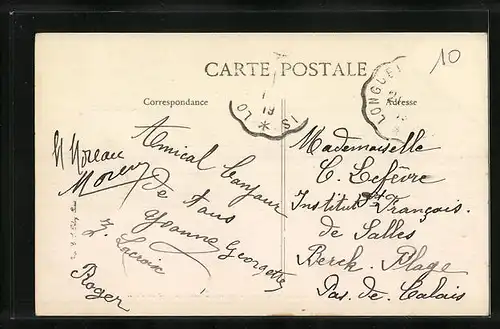 10
CARTE POSTALE
Correspondance
Adresse
LONGUE
LO
IS
Amical bonjour
de tous
Yvonne Georgette
Lacroix
Roger
H Moreau
Moreau
Mademoiselle
C. Lefèvre
Institut Français
de Salles
Berck-Plage
Pas-de-Calais